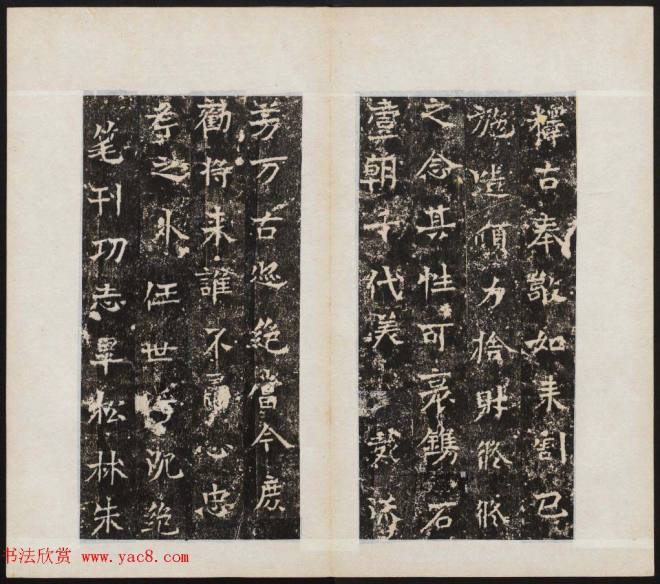 釋古奉敬如来割已
施造傾力捨財
之念其性可哀鐫石
壹朝千代美
芳万古悲絶當今庶
勸将来誰不心忠
系之外任世絶
笔刊功志畢松林朱
书法欣赏 www.yac8.com